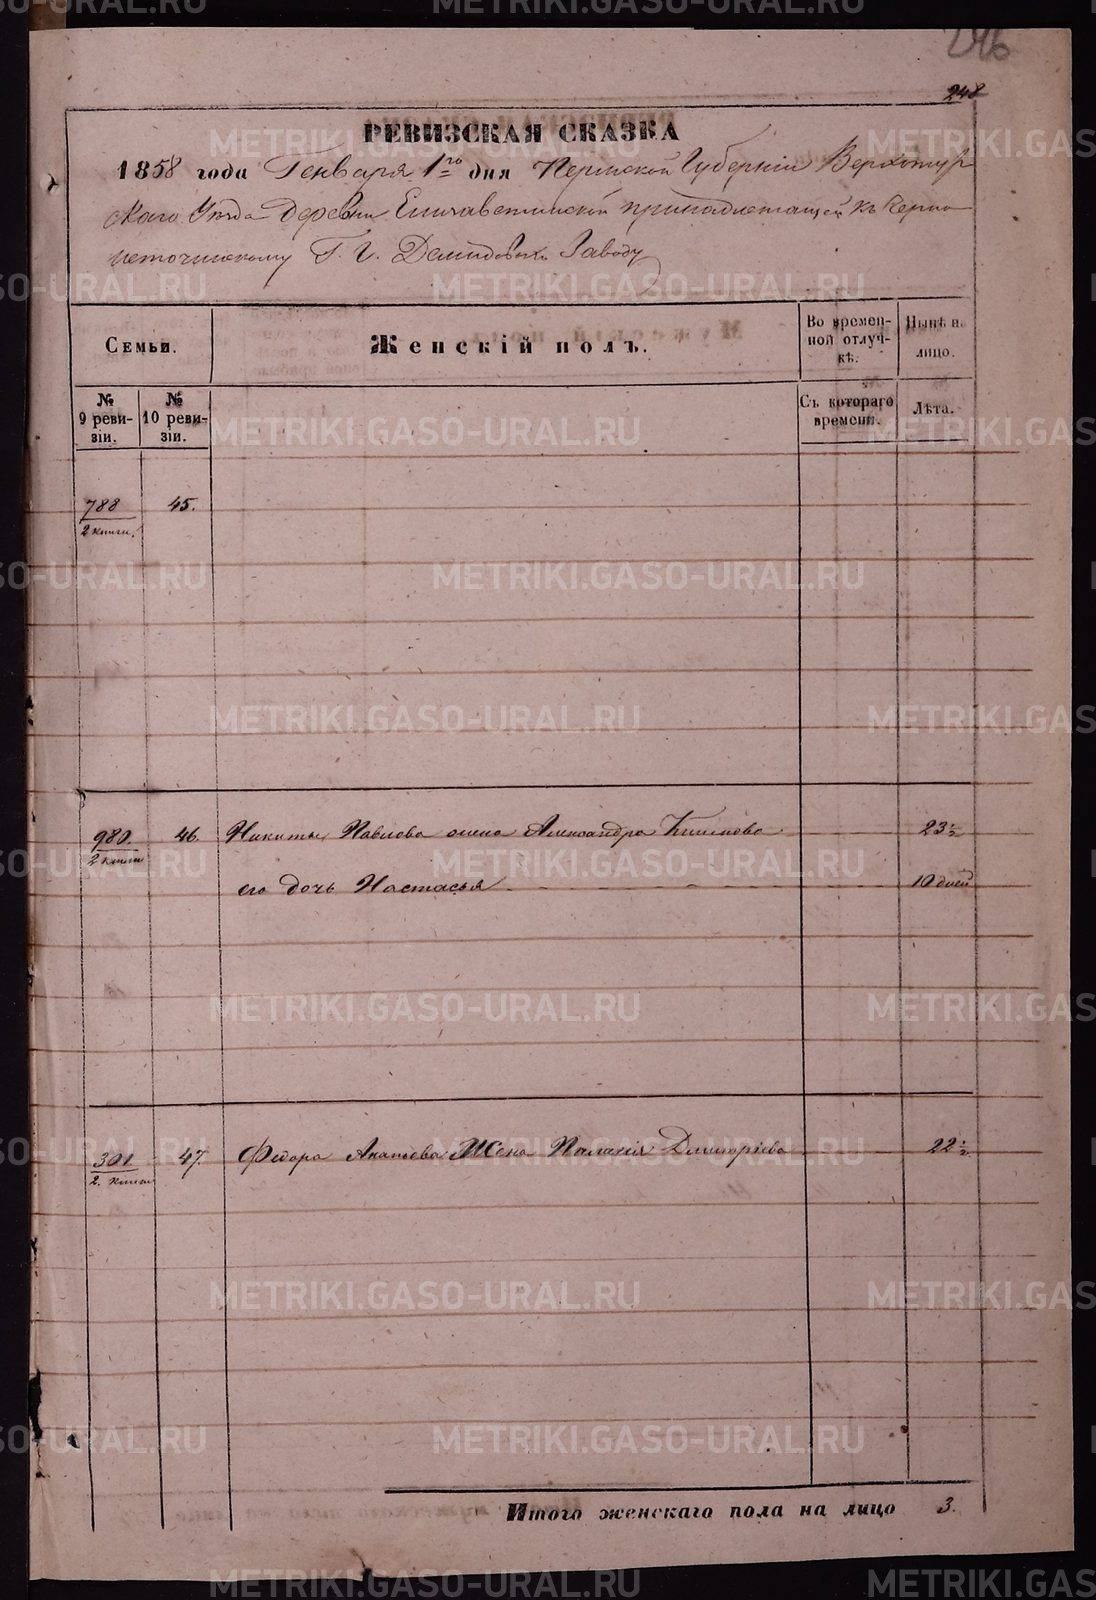 246
248
РЕВИЗСКАЯ СКАЗКА
1858 года Генваря 1го дня Пермской Губерніи Верхотур
скаго Уѣзда Деревни Елисаветинской принадлежащей къ Черно
источинскому Г. Г. Демидовыхъ Заводу
Семьи.
Женскій полъ.
Во времен-
ной отлуч-
кѣ.
Нынѣ на
лицо.
№
9 реви-
зіи.
№
10 реви-
зіи.
Съ котораго
времени.
Лѣта.
788
2 книги.
45.
980.
2 книги
46.
Никиты Павлова жена Александра
23 ½
его дочь Настасья
10 дней
301
2. книги
47.
Федора Жена Палагія Дмитріева
22 ½
Итого женскаго пола на лицо 3.
METRIKI.GASO-URAL.RU